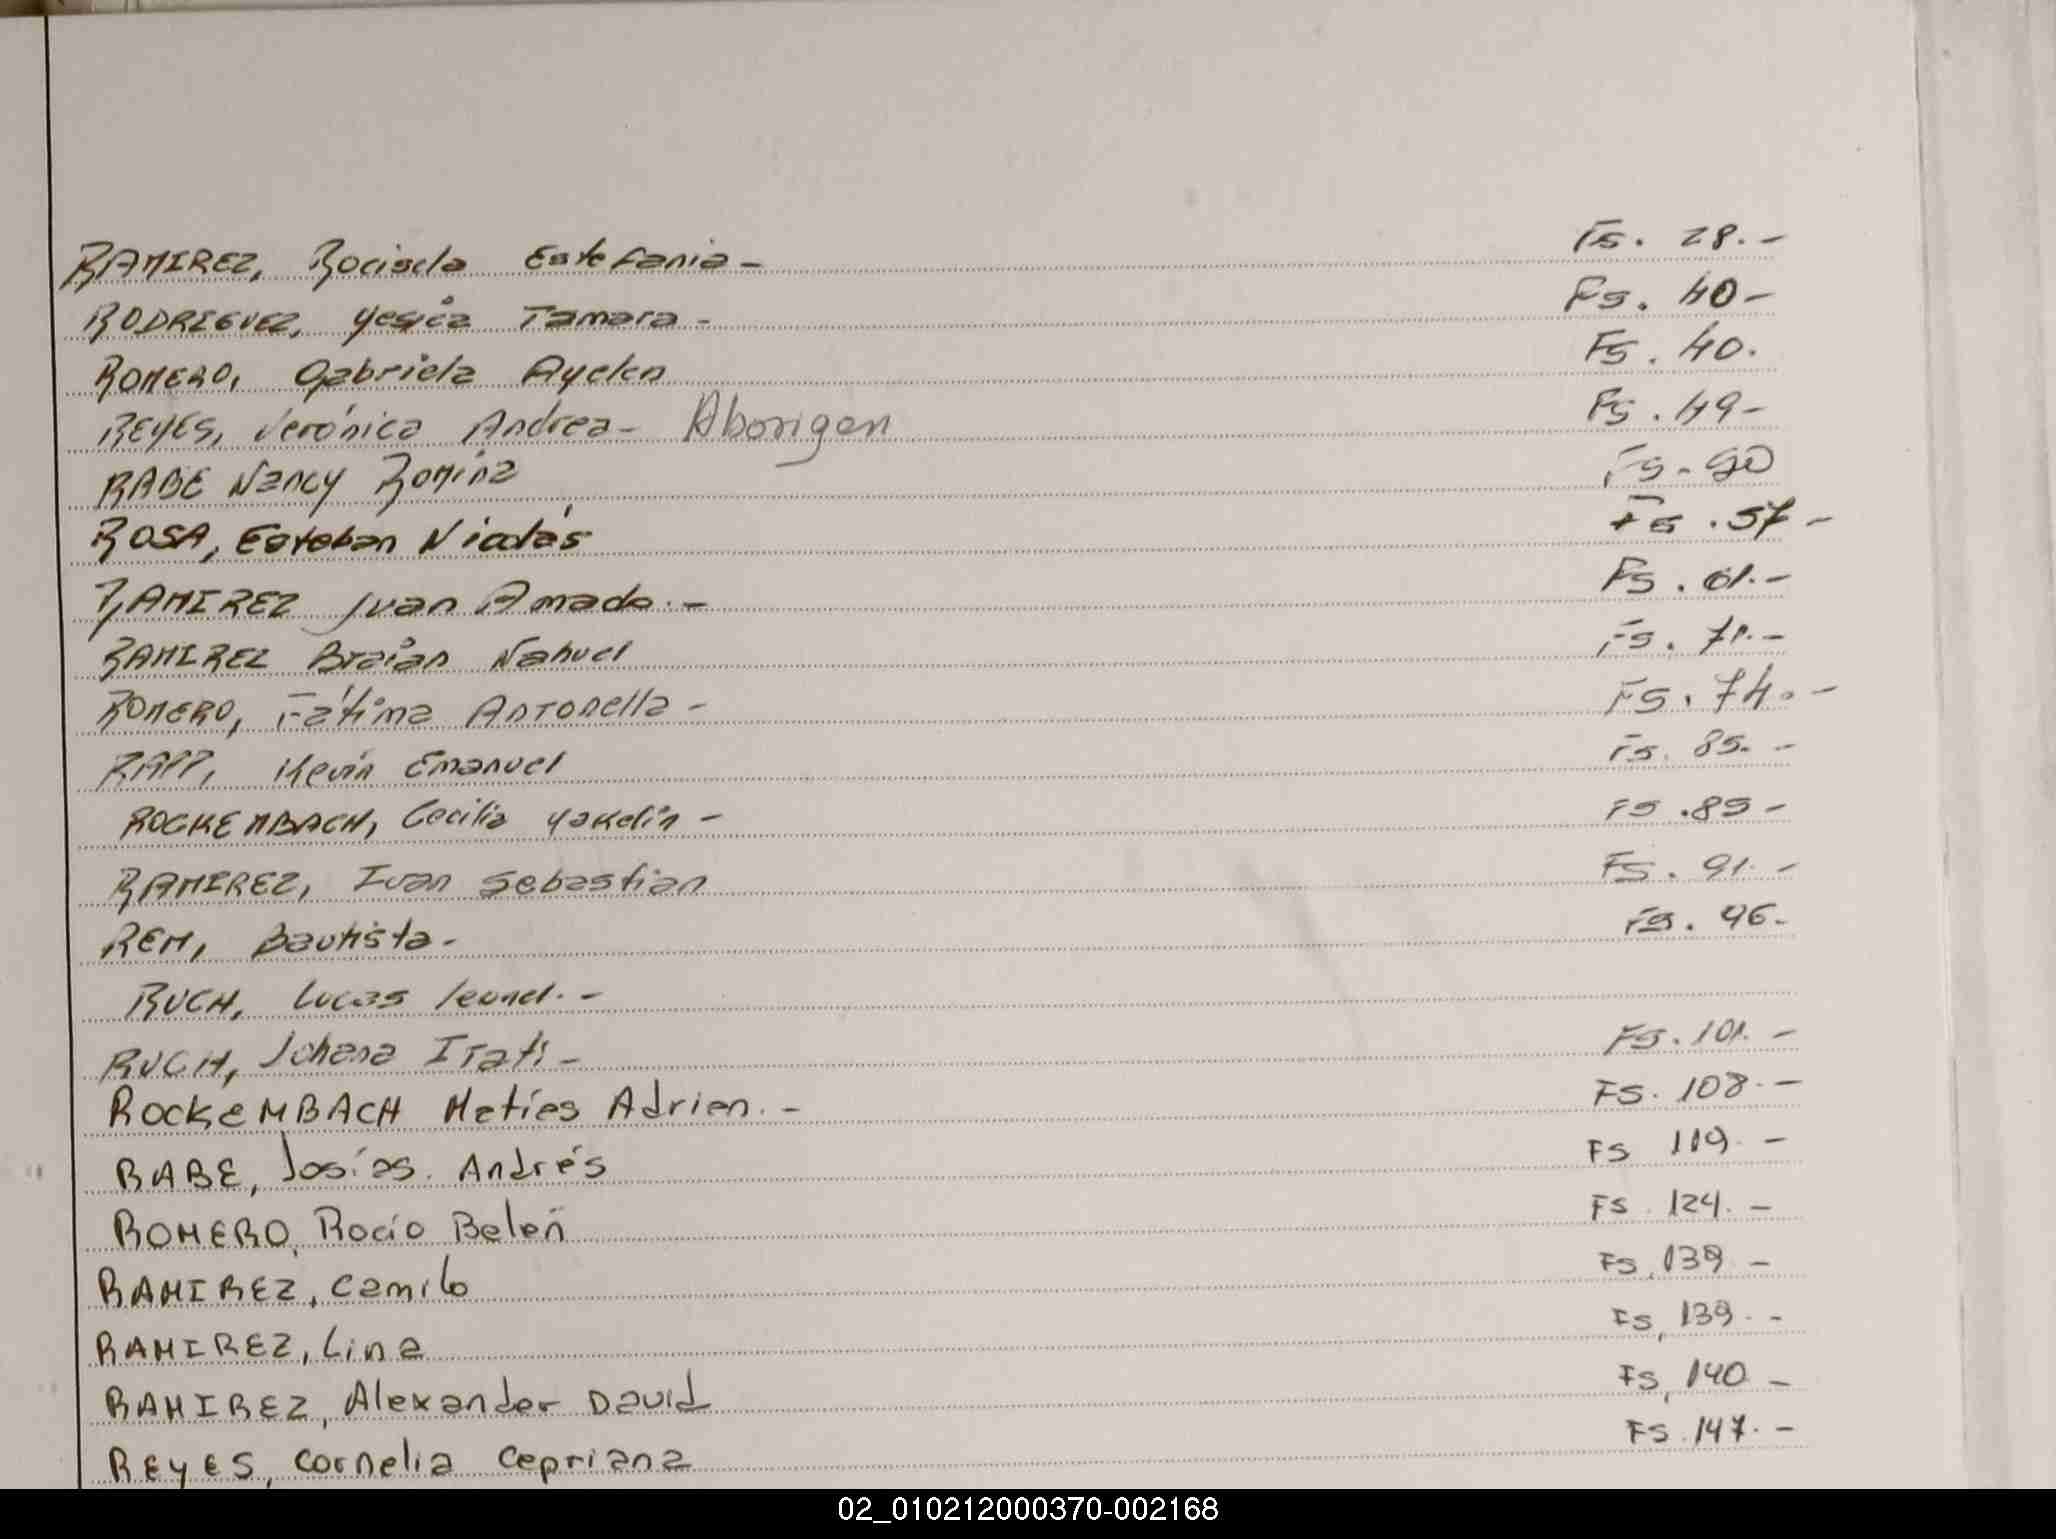 RAMIREZ, Rocisela Estefania - Fs. 28.-
RODRIGUEZ, Yesica Tamara - Fs. 40-
ROMERO, Gabriela Ayelen Fs. 40.
REYES, Verónica Andrea - Aborigen Fs. 49-
RABE Nancy Romina Fs. 50
ROSA, Esteban Nicolás Fs. 57-
RAMIREZ Juan Amado.- Fs. 61.-
RAMIREZ Braian Nahuel Fs. 71.-
ROMERO, Fátima Antonella - Fs. 74.-
RAPP, Kevin Emanuel Fs. 85.-
ROCKEMBACH, Cecilia Yakelin - Fs. 89-
RAMIREZ, Ivan Sebastian Fs. 91.-
REM, Bautista.- Fs. 96.
RUCH, Lucas Leonel.-
RUCH, Johana Itati - Fs. 101.-
ROCKEMBACH Matías Adrian.- FS. 108.-
RABE, Josías Andrés FS 119.-
ROMERO, Rocío Belén FS. 124.-
RAMIREZ, Camilo FS. 139 -
RAMIREZ, Lina FS, 139.-
RAMIREZ, Alexander David FS, 140 -
REYES, Cornelia Cepriana FS. 147.-
02_010212000370-002168